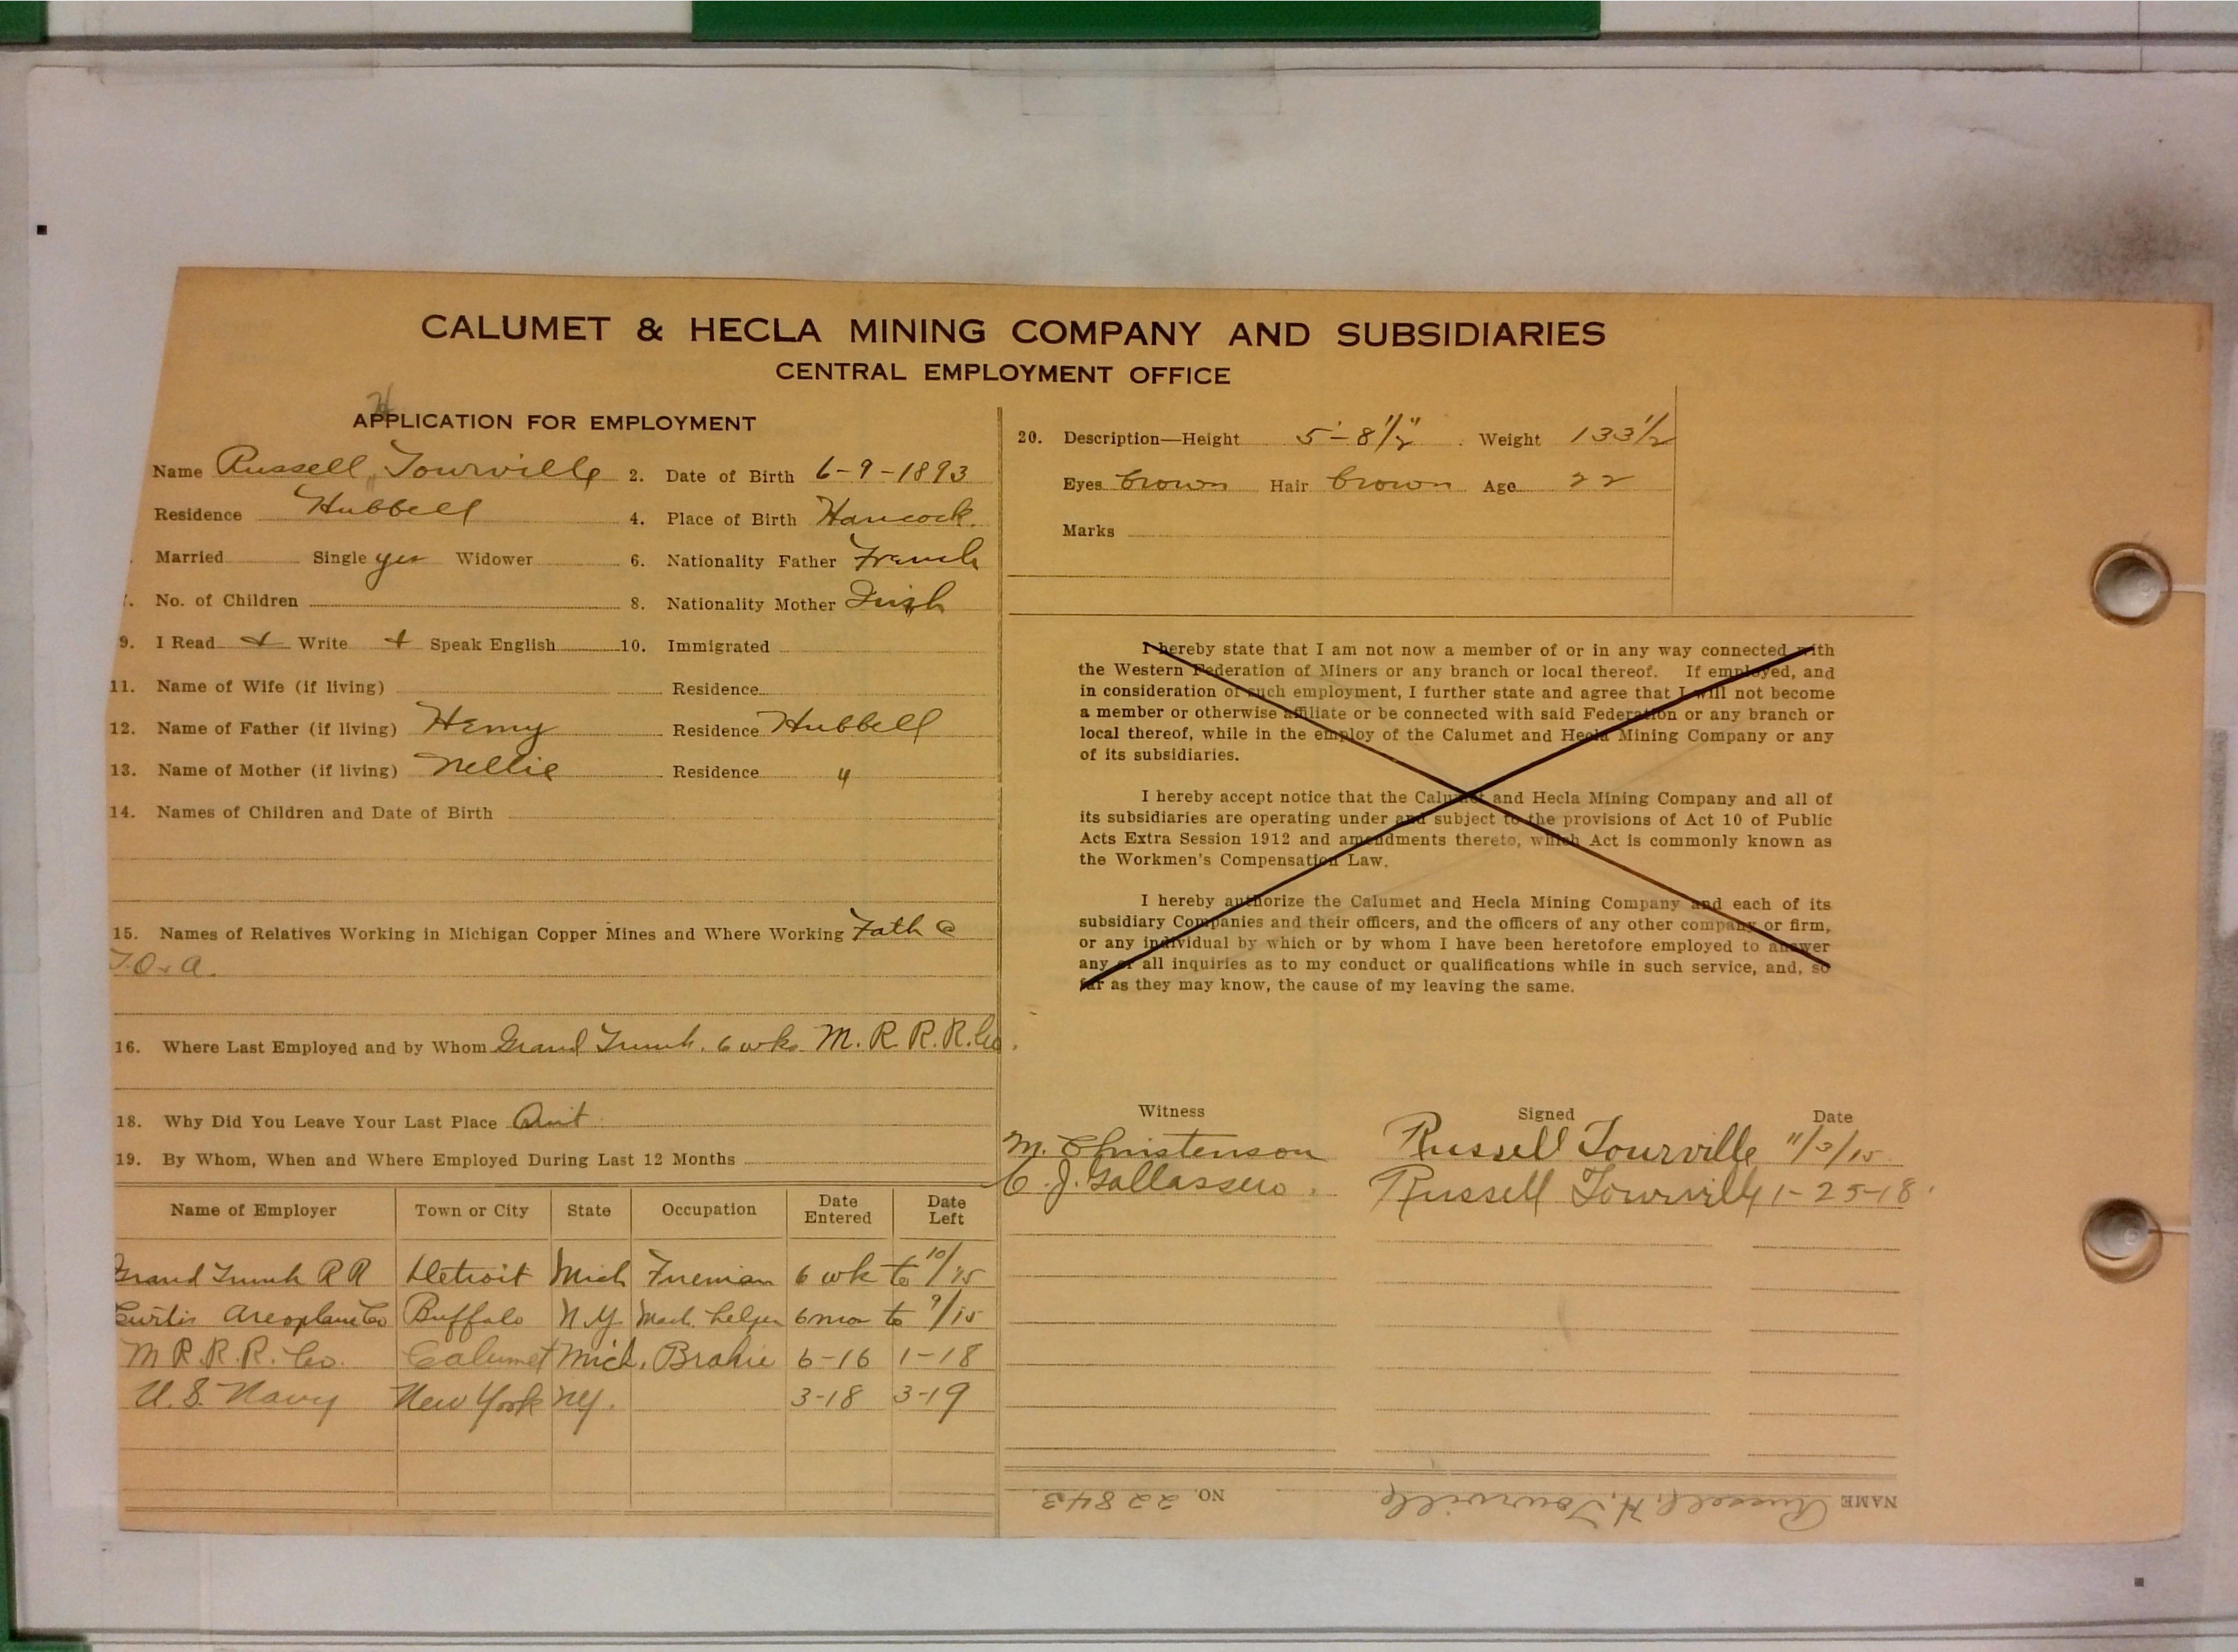 CALUMET & HECLA MINING COMPANY AND SUBSIDIARIES
CENTRAL EMPLOYMENT OFFICE
H
APPLICATION FOR EMPLOYMENT
Name Russell Tourville 2. Date of Birth 6-9-1893
Residence Hubbell 4. Place of Birth Hancock.
Married Single yes Widower 6. Nationality Father French
7. No. of Children 8. Nationality Mother Irish
9. I Read + Write + Speak English 10. Immigrated
11. Name of Wife (if living) Residence
12. Name of Father (if living) Henry Residence Hubbell
13. Name of Mother (if living) Nellie Residence "
14. Names of Children and Date of Birth
15. Names of Relatives Working in Michigan Copper Mines and Where Working Fath @
16. Where Last Employed and by Whom Grand Trunk. 6 wks M. R R.R. Co.
18. Why Did You Leave Your Last Place Quit
19. By Whom, When and Where Employed During Last 12 Months
Name of Employer Town or City State Occupation Date Entered Date Left
Grand Trunk RR Detroit Mich Fireman 6 wk to 10/15
Curtis Areoplane Co Buffalo N.Y. Mach. helper 6 mo to 9/15
M R.R.R. Co. Calumet Mich. Brakie 6-16 1-18
U.S. Navy New York NY. 3-18 3-19
20. Description—Height 5'-8 1/2" Weight 133 1/2
Eyes brown Hair brown Age 22
Marks
I hereby state that I am not now a member of or in any way connected with
the Western Federation of Miners or any branch or local thereof. If employed, and
in consideration of such employment, I further state and agree that I will not become
a member or otherwise affiliate or be connected with said Federation or any branch or
local thereof, while in the employ of the Calumet and Hecla Mining Company or any
of its subsidiaries.
I hereby accept notice that the Calumet and Hecla Mining Company and all of
its subsidiaries are operating under and subject to the provisions of Act 10 of Public
Acts Extra Session 1912 and amendments thereto, which Act is commonly known as
the Workmen's Compensation Law.
I hereby authorize the Calumet and Hecla Mining Company and each of its
subsidiary Companies and their officers, and the officers of any other company or firm,
or any individual by which or by whom I have been heretofore employed to answer
any or all inquiries as to my conduct or qualifications while in such service, and, so
far as they may know, the cause of my leaving the same.
Witness Signed Date
M. Christenson Russell Tourville 11/3/15
C. J. Gallassero. Russell Tourville 1-25-18
NAME Russell H. Tourville NO. 22843